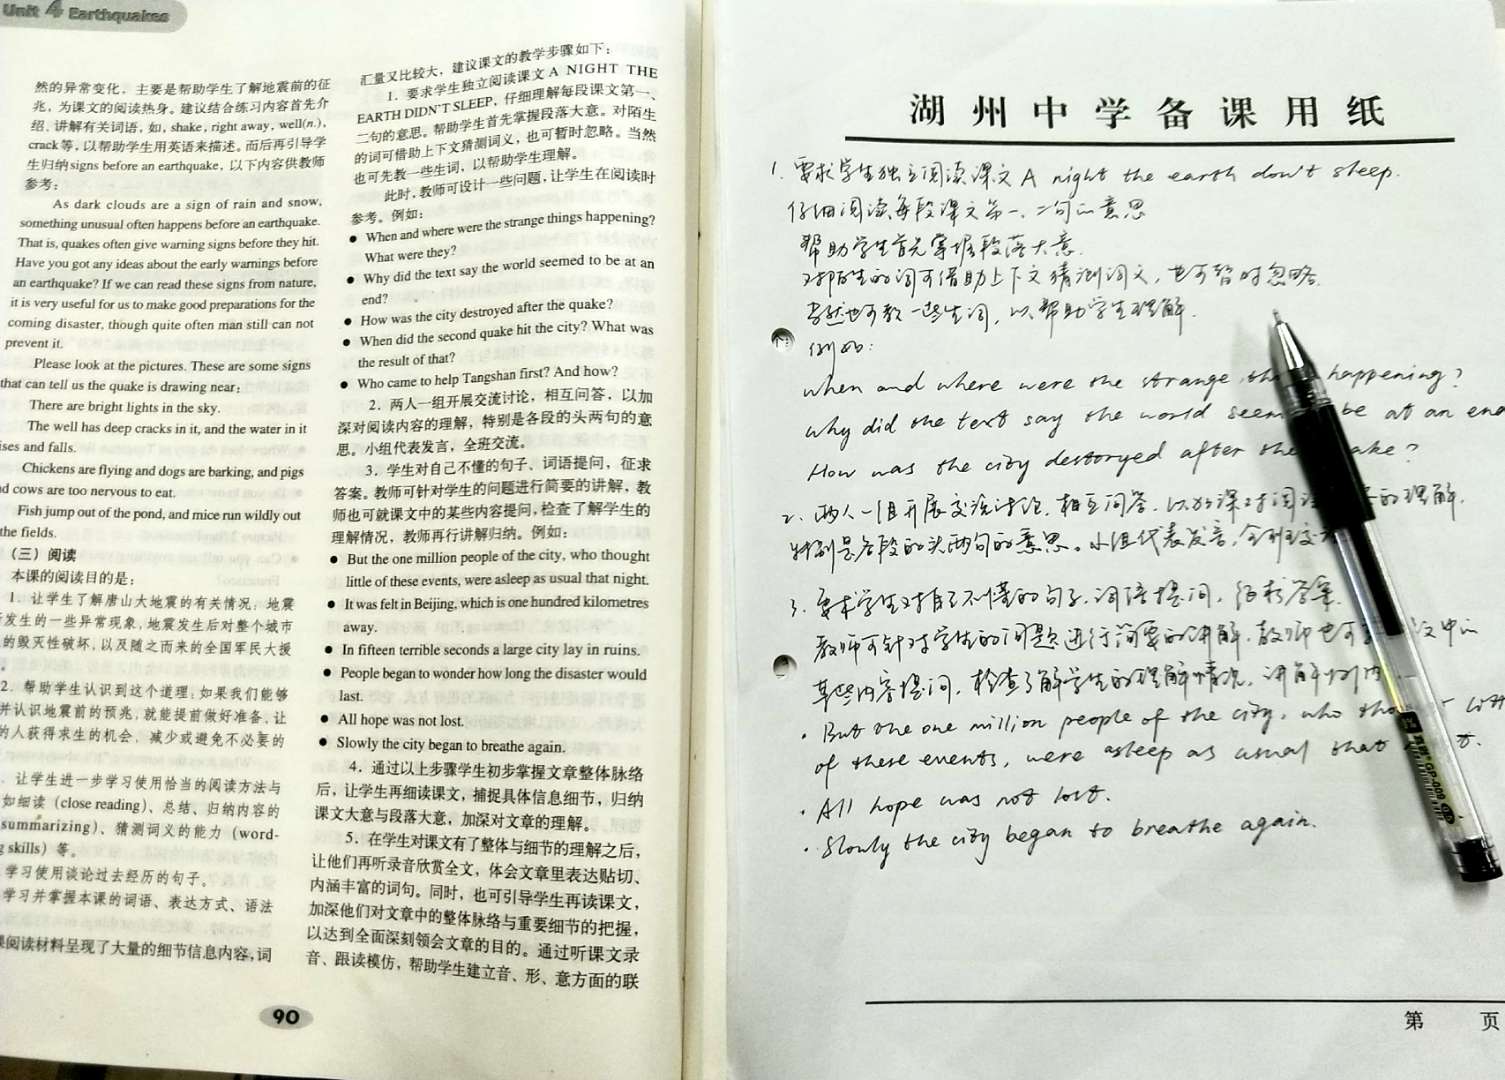 Unit 4 Earthquakes
然的异常变化，主要是帮助学生了解地震前的征
兆，为课文的阅读热身。建议结合练习内容首先介
绍、讲解有关词语，如，shake, right away, well(n.),
crack等，以帮助学生用英语来描述。而后再引导学
生归纳signs before an earthquake，以下内容供教师
参考：
As dark clouds are a sign of rain and snow,
something unusual often happens before an earthquake.
That is, quakes often give warning signs before they hit.
Have you got any ideas about the early warnings before
an earthquake? If we can read these signs from nature,
it is very useful for us to make good preparations for the
coming disaster, though quite often man still can not
prevent it.
Please look at the pictures. These are some signs
that can tell us the quake is drawing near:
There are bright lights in the sky.
The well has deep cracks in it, and the water in it
ises and falls.
Chickens are flying and dogs are barking, and pigs
d cows are too nervous to eat.
Fish jump out of the pond, and mice run wildly out
the fields.
（三）阅读
本课的阅读目的是：
1. 让学生了解唐山大地震的有关情况：地震
发生的一些异常现象，地震发生后对整个城市
的毁灭性破坏，以及随之而来的全国军民大援
2. 帮助学生认识到这个道理：如果我们能够
并认识地震前的预兆，就能提前做好准备，让
的人获得求生的机会，减少或避免不必要的
. 让学生进一步学习使用恰当的阅读方法与
如细读（close reading）、总结、归纳内容的
summarizing）、猜测词义的能力（word-
g skills）等。
学习使用谈论过去经历的句子。
学习并掌握本课的词语、表达方式、语法
阅读材料呈现了大量的细节信息内容，词
90
汇量又比较大，建议课文的教学步骤如下：
1. 要求学生独立阅读课文A NIGHT THE
EARTH DIDN'T SLEEP，仔细理解每段课文第一、
二句的意思。帮助学生首先掌握段落大意。对陌生
的词可借助上下文猜测词义，也可暂时忽略。当然
也可先教一些生词，以帮助学生理解。
此时，教师可设计一些问题，让学生在阅读时
参考。例如：
● When and where were the strange things happening?
What were they?
● Why did the text say the world seemed to be at an
end?
● How was the city destroyed after the quake?
● When did the second quake hit the city? What was
the result of that?
● Who came to help Tangshan first? And how?
2. 两人一组开展交流讨论，相互问答，以加
深对阅读内容的理解，特别是各段的头两句的意
思。小组代表发言，全班交流。
3. 学生对自己不懂的句子、词语提问，征求
答案。教师可针对学生的问题进行简要的讲解，教
师也可就课文中的某些内容提问，检查了解学生的
理解情况，教师再行讲解归纳。例如：
● But the one million people of the city, who thought
little of these events, were asleep as usual that night.
● It was felt in Beijing, which is one hundred kilometres
away.
● In fifteen terrible seconds a large city lay in ruins.
● People began to wonder how long the disaster would
last.
● All hope was not lost.
● Slowly the city began to breathe again.
4. 通过以上步骤学生初步掌握文章整体脉络
后，让学生再细读课文，捕捉具体信息细节，归纳
课文大意与段落大意，加深对文章的理解。
5. 在学生对课文有了整体与细节的理解之后，
让他们再听录音欣赏全文，体会文章里表达贴切、
内涵丰富的词句。同时，也可引导学生再读课文，
加深他们对文章中的整体脉络与重要细节的把握，
以达到全面深刻领会文章的目的。通过听课文录
音、跟读模仿，帮助学生建立音、形、意方面的联
湖州中学备课用纸
1. 要求学生独立阅读课文 A night the earth don't sleep.
仔细阅读每段课文第一、二句的意思
帮助学生首先掌握段落大意.
对陌生的词可借助上下文猜测词义，也可暂时忽略.
当然也可教一些生词，以帮助学生理解.
例如:
when and where were the strange happening?
why did the text say the world seem be at an end
How was the city destoryed after the ake?
2. 两人一组开展交流讨论，相互问答，以加深对阅读 的理解.
特别是各段的头两句的意思。小组代表发言，全班交
3. 要求学生对自己不懂的句子，词语提问，征求答案.
教师可针对学生的问题进行简要的讲解，教师也可 文中的
某些内容提问，检查了解学生的理解情况，讲解归纳
· But the one million people of the city, who tho
of these events, were asleep as usual that
· All hope was not lost.
· Slowly the city began to breathe again.
GP-009
第 页